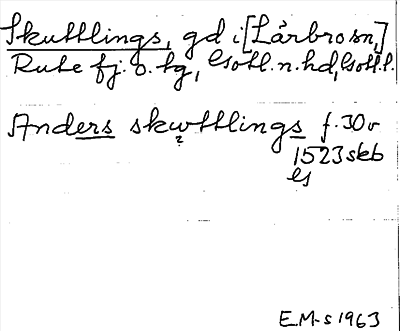 Skuttlings, gd i [Lärbro sn,]
Rute fj. o. tg, Gotl. n. hd, Gotl. l.
Anders skwttlings f. 30v
?
1523 skb
EM-s 1963